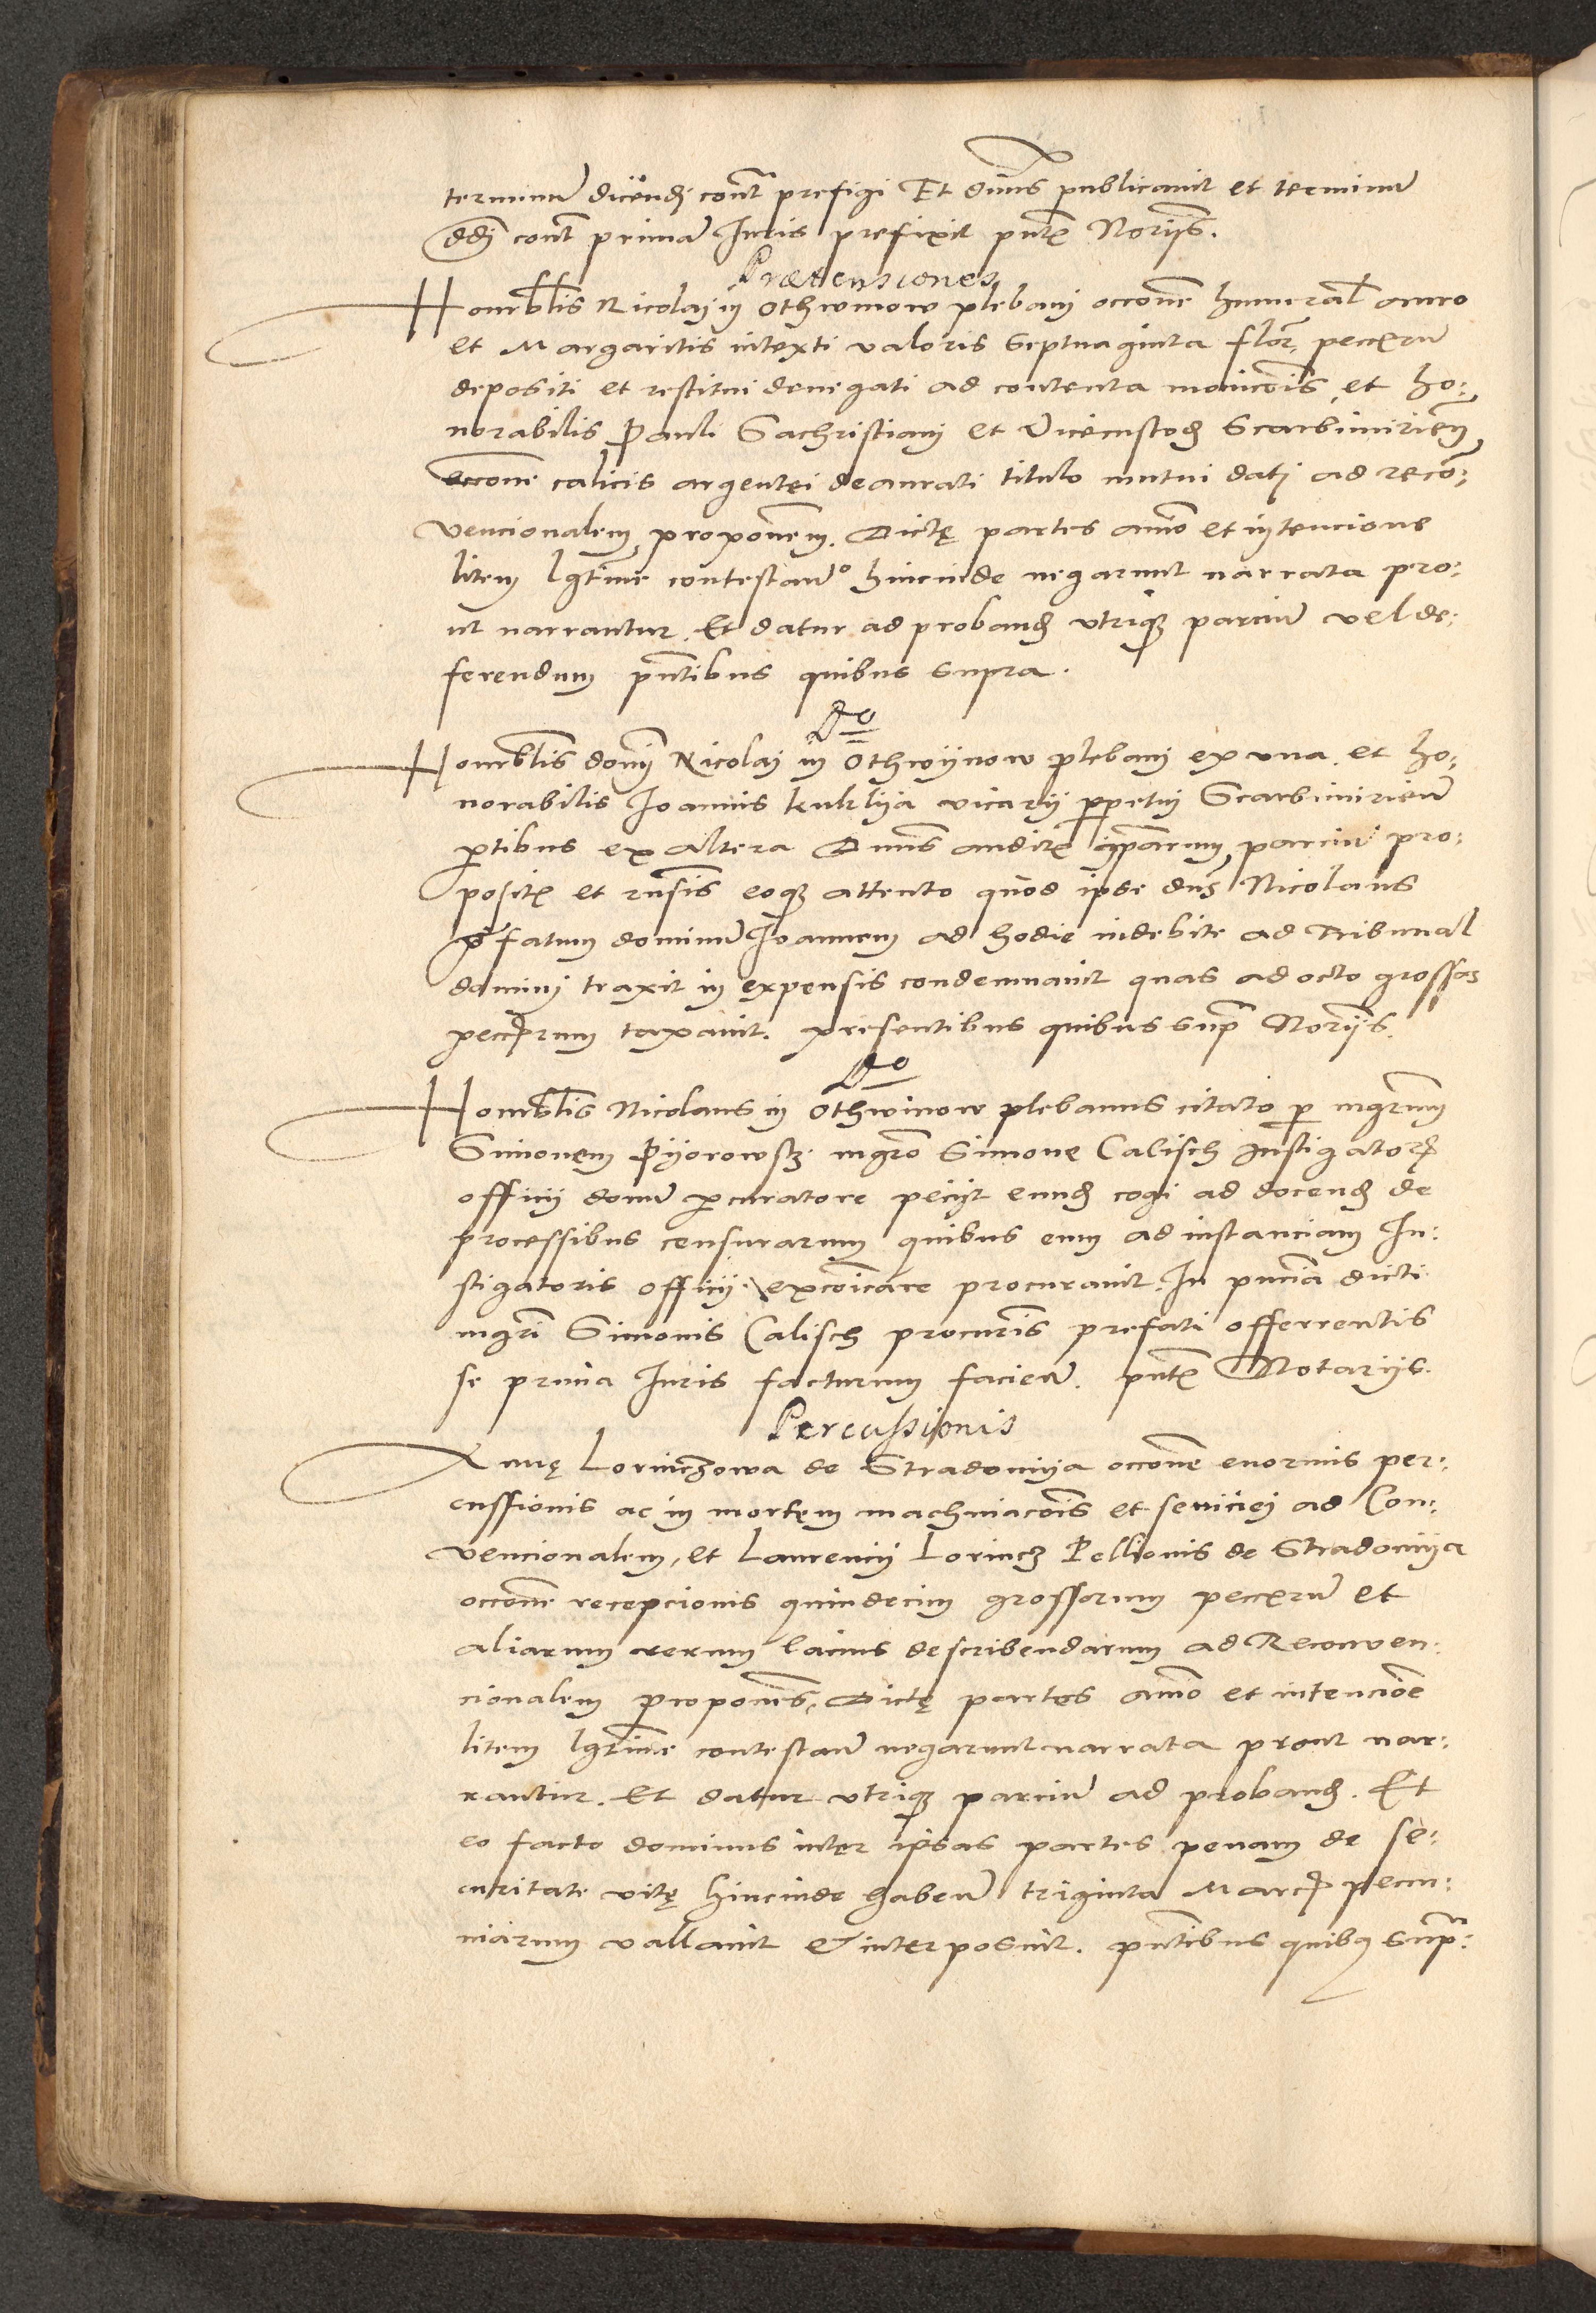 terminu dicendi cont prefigi Et dnus publicauit et terminu
ddi cont prima Iuris prefixit pntẽ Norijs.
Prætensiones
Honorblis Nicolaj in Othwinow plebani occone humeral auro
et Margaritis intexti valoris septuaginta flor. pecctru
depositi et restitui denegati ad contenta monicois et ho:
norabilis Pauli Sachristiani et Vicecustod Scarbimirien
occone calicis argentei deaurati titulo mutui dati ad reco:
vencionalem proponem. Dictę partes amo et intencione
litem lgtime contestan hincinde negarunt narrata pro:
ut narrantur. Et datur ad proband vtriq parciu vel de:
ferendum pntibus quibus supra.
Do
Honorblis domi Nicolaj in Othwijnow plebani ex vna et ho:
norabilis Ioannis kuklija vicarij ppetuj Scarbimirien
ptibus ex altera Dnus auditẽ ipsarum parciu pro:
positẽ et rnsis eoq attento quod ipse dns Nicolaus
pfatum dominu Ioannem ad hodie indebite ad Tribunal
domini traxit in expensis condemnauit quas ad octo grossos
pecctrum taxauit. presentibus quibus supr Norijs.
Do
Honorblis Nicolaus in Othwinow plebanus citato p mgrum
Simonem Pijorowsz mgro Simone Calisch Instigatore
officij domu pcuratore pecijt eund cogi ad docend de
processibus censurarum quibus eum ad instanciam In:
stigatoris officij excoicare procurauit. In pncia dicti
mgri Simonis Calisch procuris prefati offerrentis
se prima Iuris facturum facien. pntẽ Notarijs.
Percussionis
Annę Lorinczowa de Stradomija occone enormis per:
cussionis ac in mortem machinacois et seuiciej ad Con:
vencionalem, et Laurencij Lorincz Pellionis de Stradomija
occone recepcionis quindecim grossorum pecctru et
aliarum rerum lacius describendarum ad Reconuen:
cionalem proponens, Dictę partes amo et intencioe
litem lgtime contestan negarunt narrata prout nar:
rantur. Et datur vtriq parciu ad proband. Et
eo facto dominus inter ipsas partes penam de se:
curitate vitę hincinde haben triginta Marc pecu:
niarum vallauit & interposuit. pntibus quibus supr: